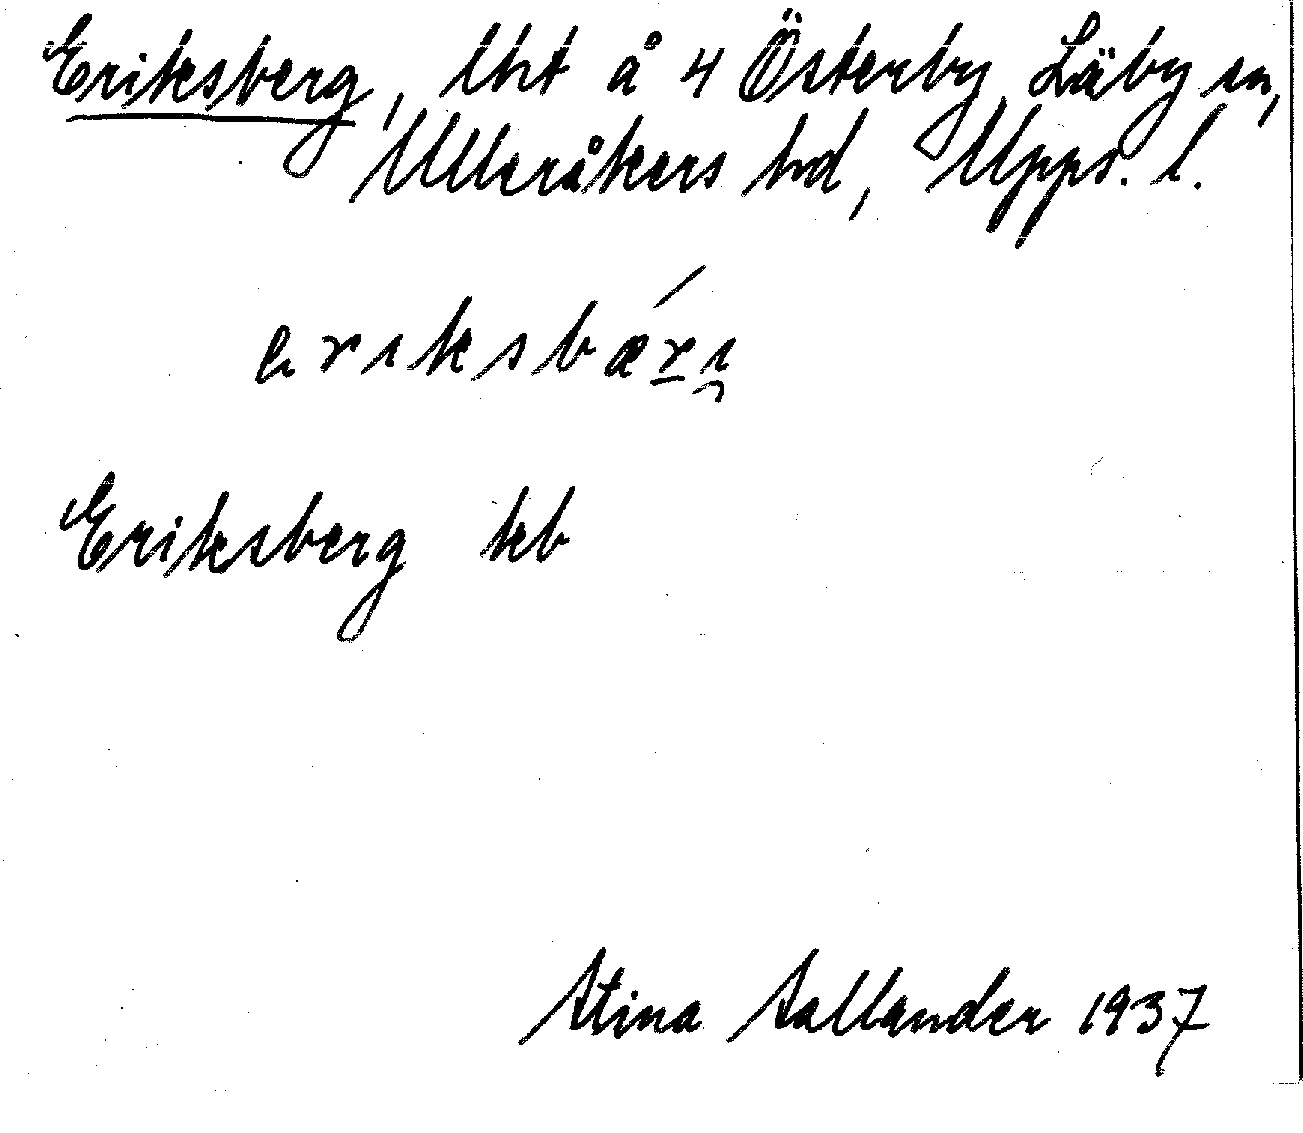 Eriksberg, lht å 4 Österby, Läby sn,
Ulleråkers hd, Upps. l.
eriksbær̲i̯
Eriksberg kb
Stina Sallander 1937